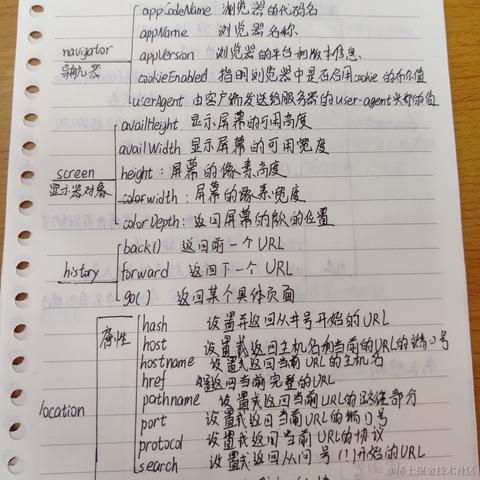 appCodeName 浏览器的代码名
appName 浏览器名称
navigator
导航器
appVersion 浏览器的平台和版本信息
cookieEnabled 指明浏览器中是否启用cookie的布尔值
userAgent 由客户端发送给服务器的user-agent头部的值
availHeight 显示屏幕的可用高度
availWidth 显示屏幕的可用宽度
screen
显示器对象
height:屏幕的像素高度
width:屏幕的像素宽度
colorDepth:返回屏幕的 的位置
history
back() 返回前一个URL
forward 返回下一个URL
go() 返回某个具体页面
location
属性
hash 设置并返回从井号开始的URL
host 设置或返回主机名和当前的URL的端口号
hostname 设置或返回当前URL的主机名
href 返回当前完整的URL
pathname 设置或返回当前URL的路径部分
port 设置或返回当前URL的端口号
protocol 设置或返回当前URL的协议
search 设置或返回从问号(?)开始的URL
@稀土掘金技术社区